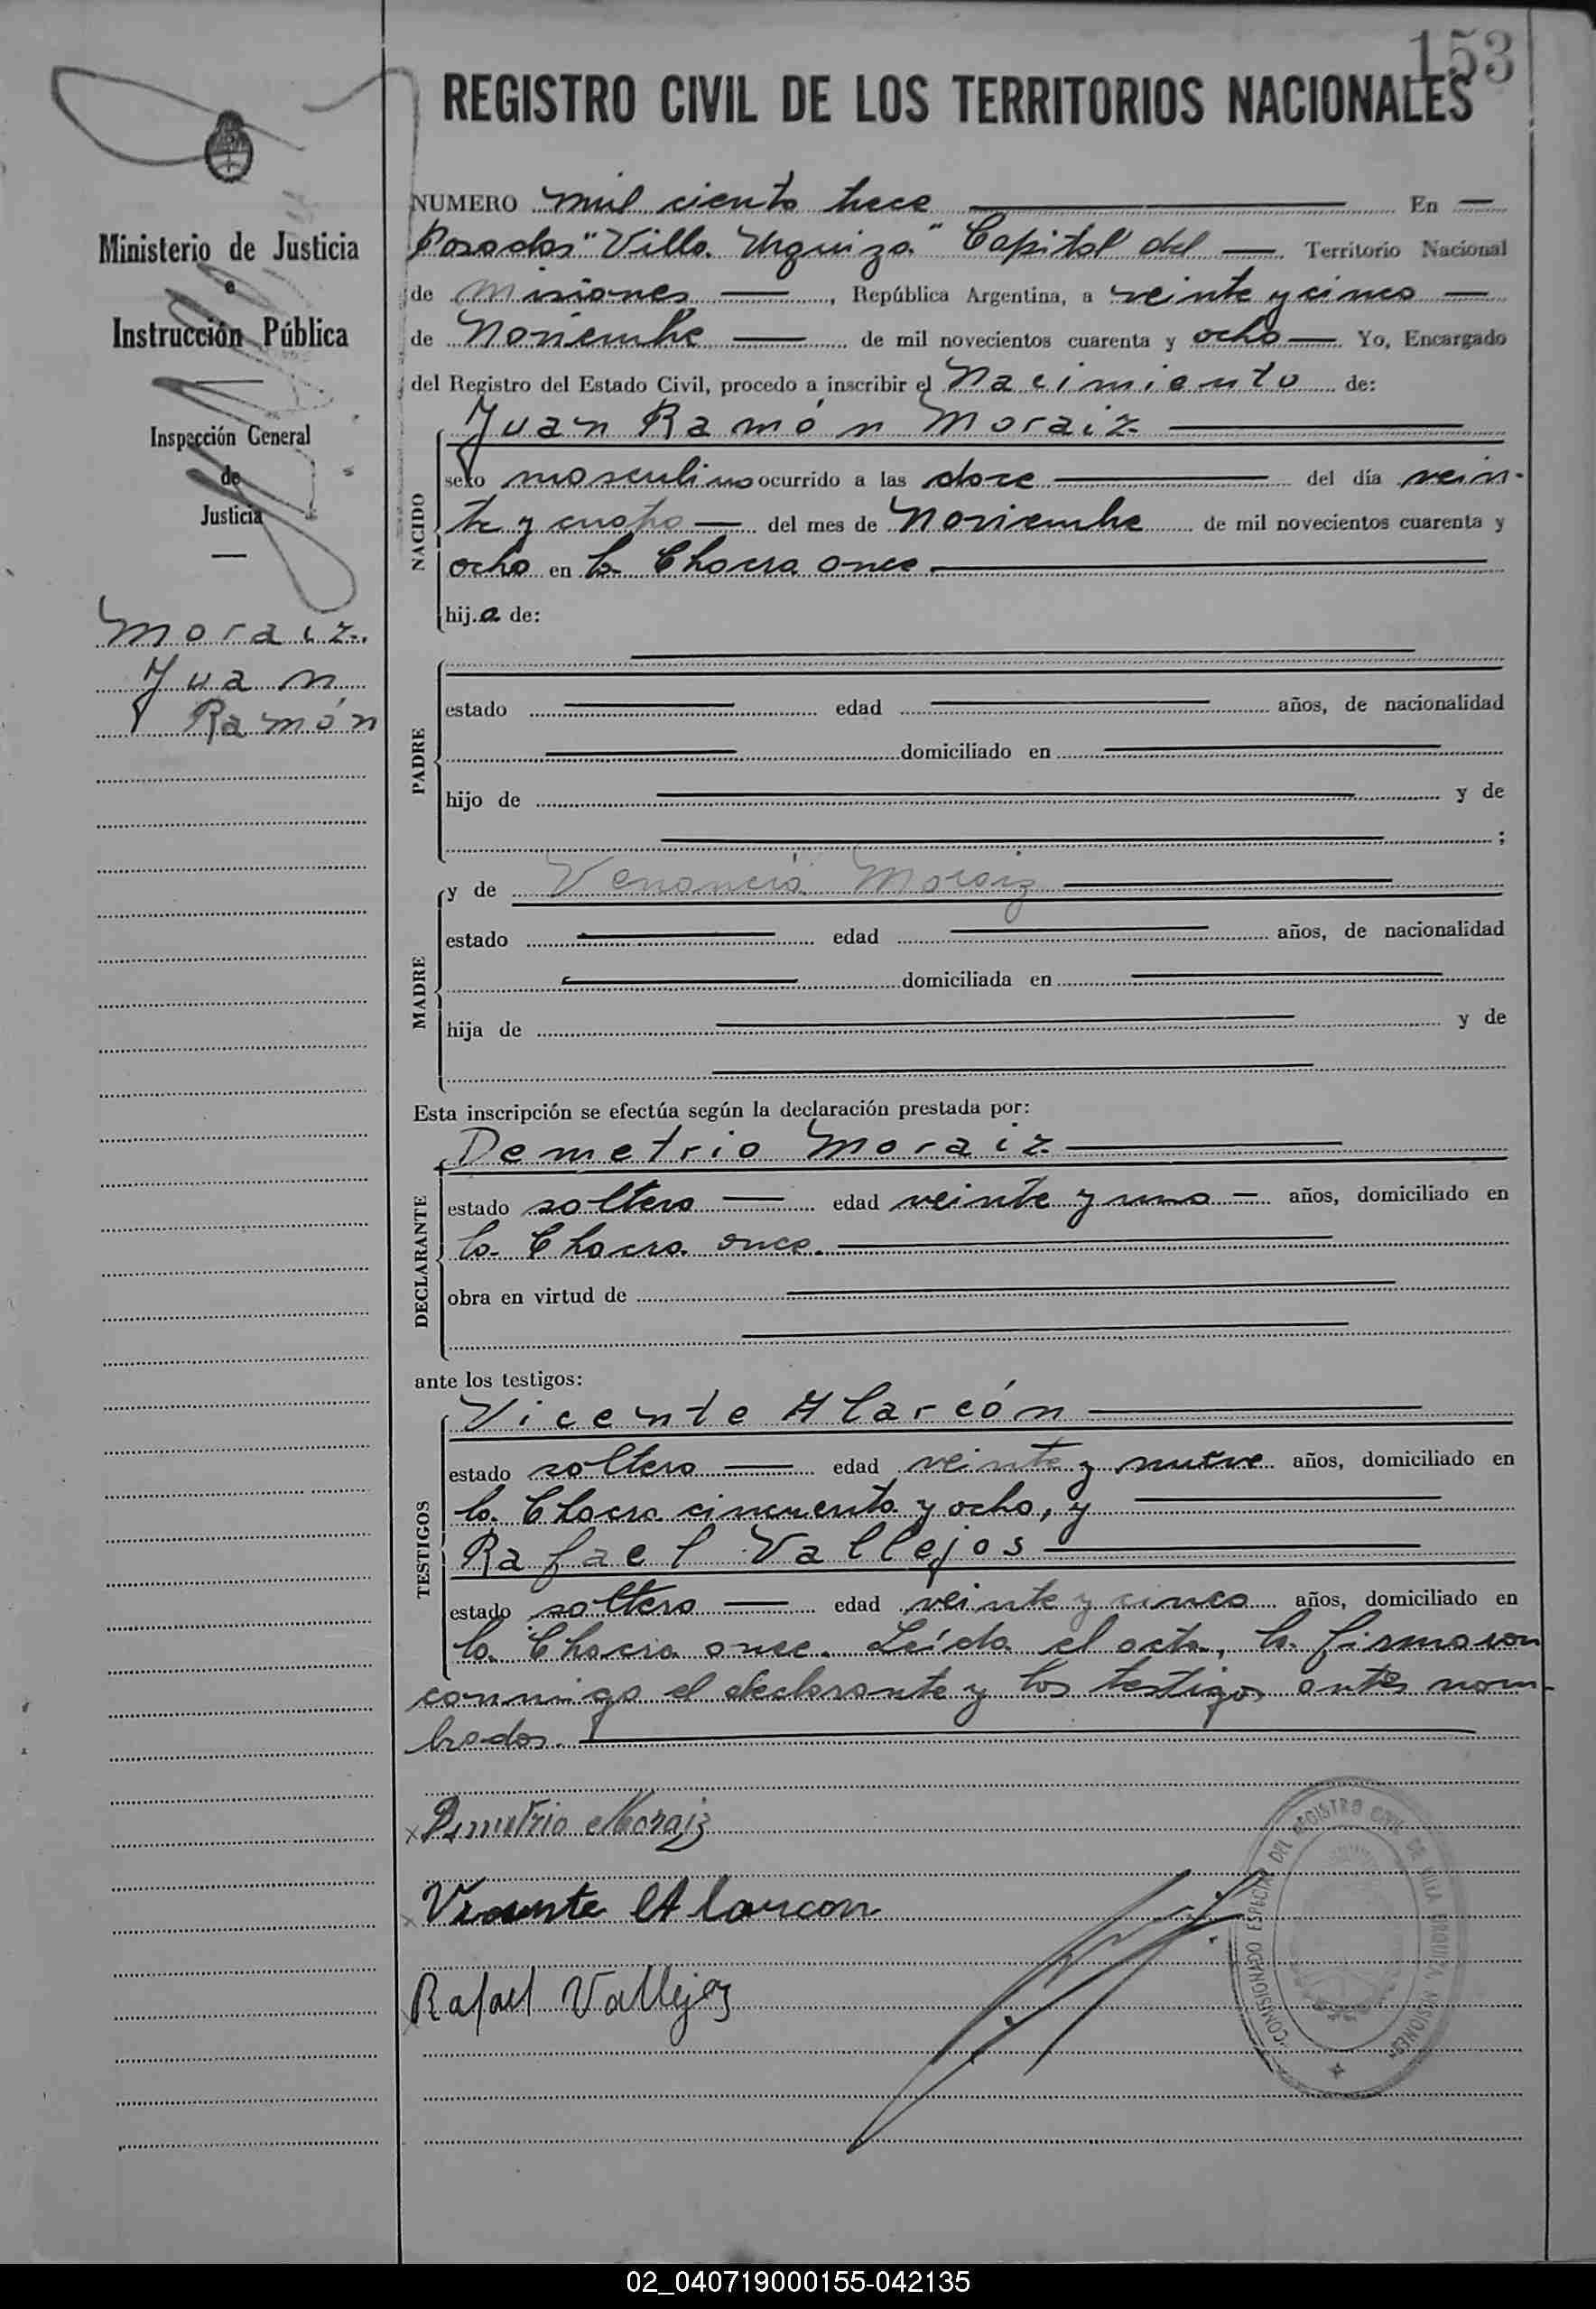 153
REGISTRO CIVIL DE LOS TERRITORIOS NACIONALES
Ministerio de Justicia
e
Instrucción Pública
Inspección General
de
Justicia
Moraiz.
Juan
Ramón
NUMERO mil ciento trece En
Posadas "Villa Urquiza" Capital del Territorio Nacional
de Misiones, República Argentina, a veinte y cinco
de Noviembre de mil novecientos cuarenta y ocho Yo, Encargado
del Registro del Estado Civil, procedo a inscribir el Nacimiento de:
Juan Ramón Moraiz
NACIDO
sexo masculino ocurrido a las doce del día vein-
te y cuatro del mes de Noviembre de mil novecientos cuarenta y
ocho en la Chacra once
hijo de:
PADRE
estado edad años, de nacionalidad
domiciliado en
hijo de y de
;
MADRE
y de Venancia Moraiz
estado edad años, de nacionalidad
domiciliada en
hija de y de
Esta inscripción se efectúa según la declaración prestada por:
Demetrio Moraiz
DECLARANTE
estado soltero edad veinte y uno años, domiciliado en
la Chacra once.
obra en virtud de
ante los testigos:
Vicente Alarcón
TESTIGOS
estado soltero edad veinte y nueve años, domiciliado en
la Chacra cincuenta y ocho, y
Rafael Vallejos
estado soltero edad veinte y cinco años, domiciliado en
la Chacra once. Leída el acta, la firmaron
conmigo el declarante y los testigos antes nom-
brados.
x Demetrio Moraiz
x Vicente Alarcon
x Rafael Vallejos
COMISIONADO ESPECIAL DEL REGISTRO CIVIL DE VILLA URQUIZA MISIONES
02_040719000155-042135